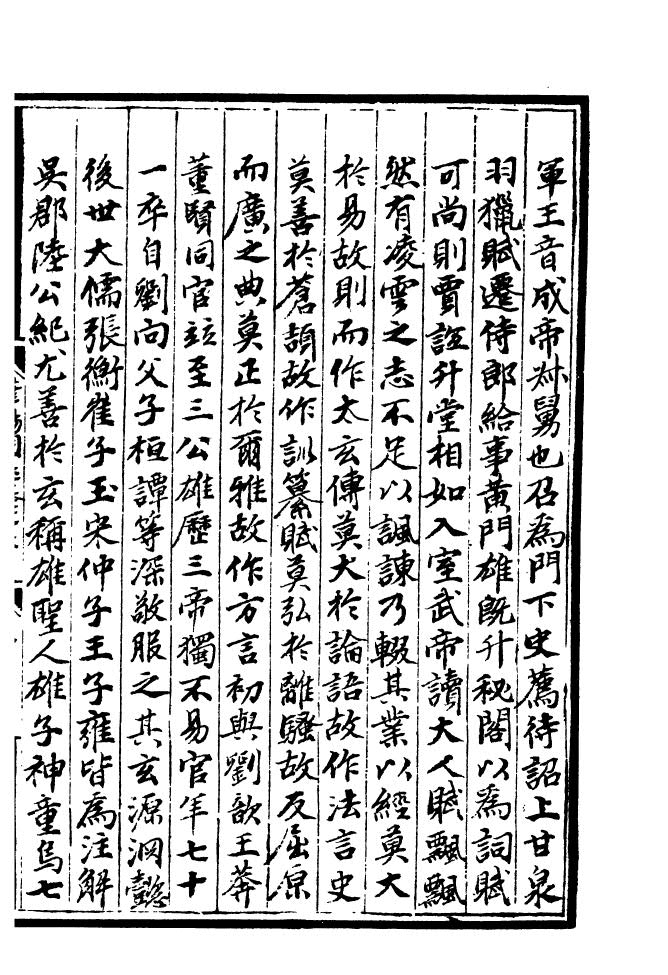 軍王音成帝叔舅也召為門下史薦待詔上甘泉
羽獵賦遷侍郎給事黃門雄既升秘閣以為詞賦
可尚則賈誼升堂相如入室武帝讀大人賦飄飄
然有凌雲之志不足以諷諫乃輟其業以經莫大
於易故則而作太玄傳莫大於論語故作法言史
莫善於蒼頡故作訓纂賦莫弘於離騷故反屈原
而廣之典莫正於爾雅故作方言初與劉歆王莽
董賢同官竝至三公雄歷三帝獨不易官年七十
一卒自劉向父子桓譚等深敬服之其玄源淵懿
後世大儒張衡崔子玉宋仲子王子雍皆為注解
吳郡陸公紀尤善於玄稱雄聖人雄子神童烏七